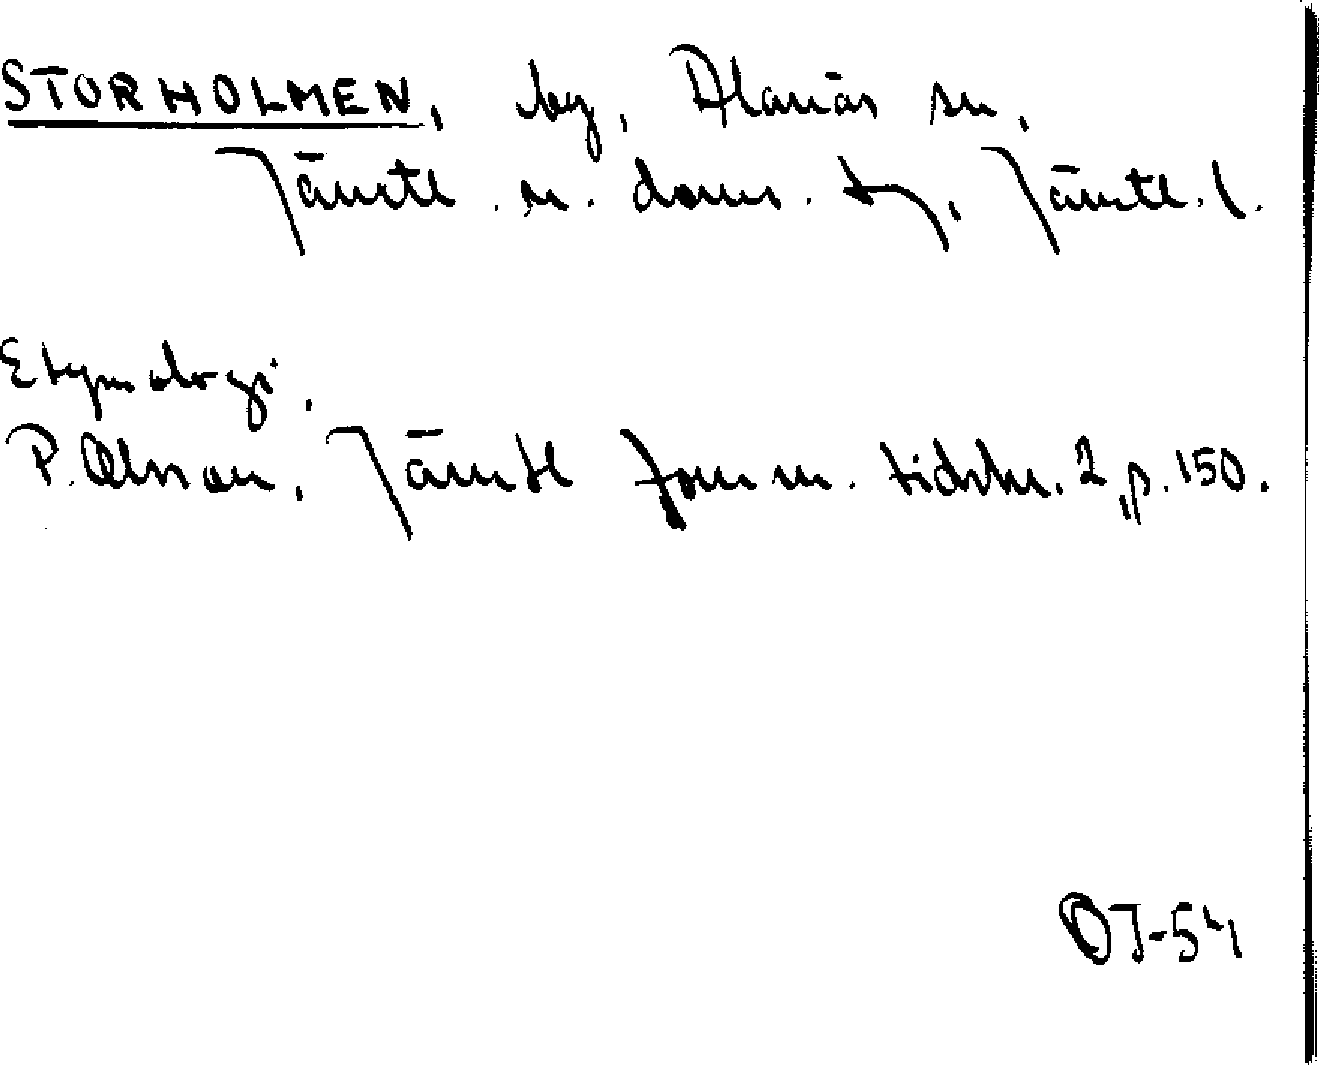 STORHOLMEN, by, Alanäs sn,
Jämtl. n. doms. tg, Jämtl. l.
Etymologi.
P. Olsson, Jämtl fornm. tidskr. 2, p. 150.
OJ-54